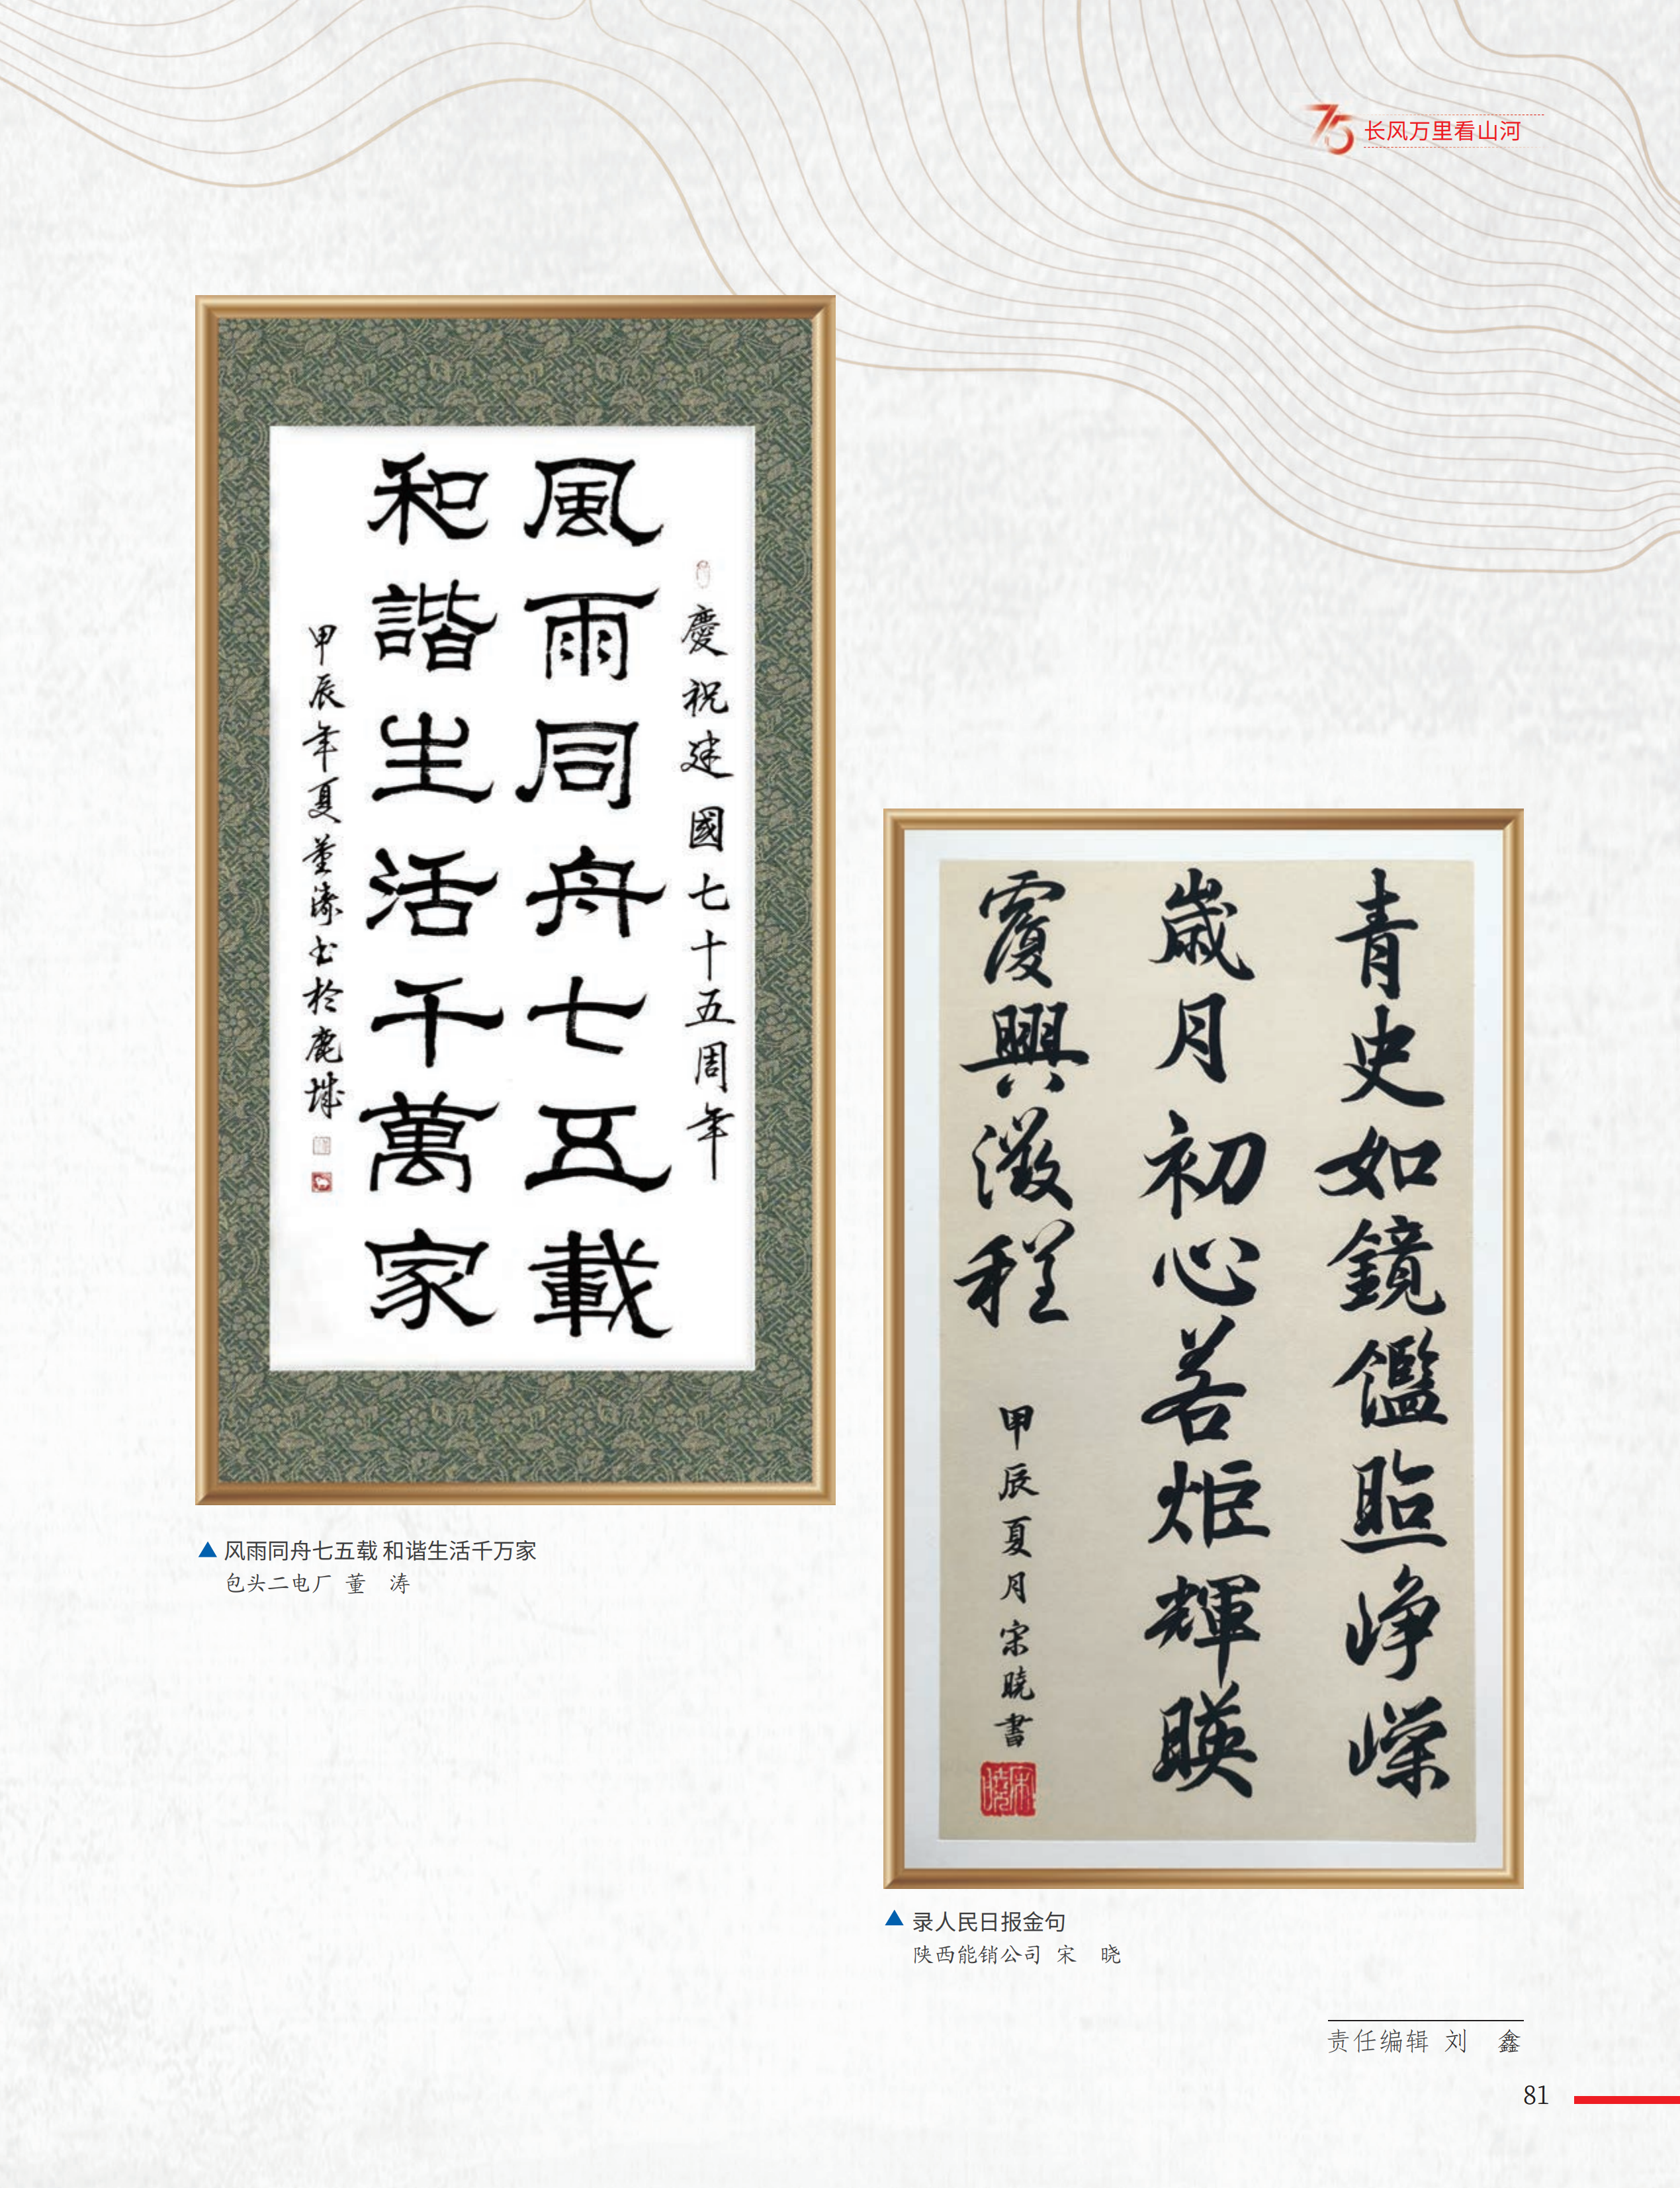 75
长风万里看山河
慶祝建國七十五周年
風雨同舟七五載
和諧生活千萬家
甲辰年夏董濤书於鹿城
风雨同舟七五载 和谐生活千万家
包头二电厂 董 涛
青史如鏡鑑照崢嶸
歲月初心若炬輝映
復興征程
甲辰夏月宋曉書
宋曉
录人民日报金句
陕西能销公司 宋 晓
责任编辑 刘 鑫
81